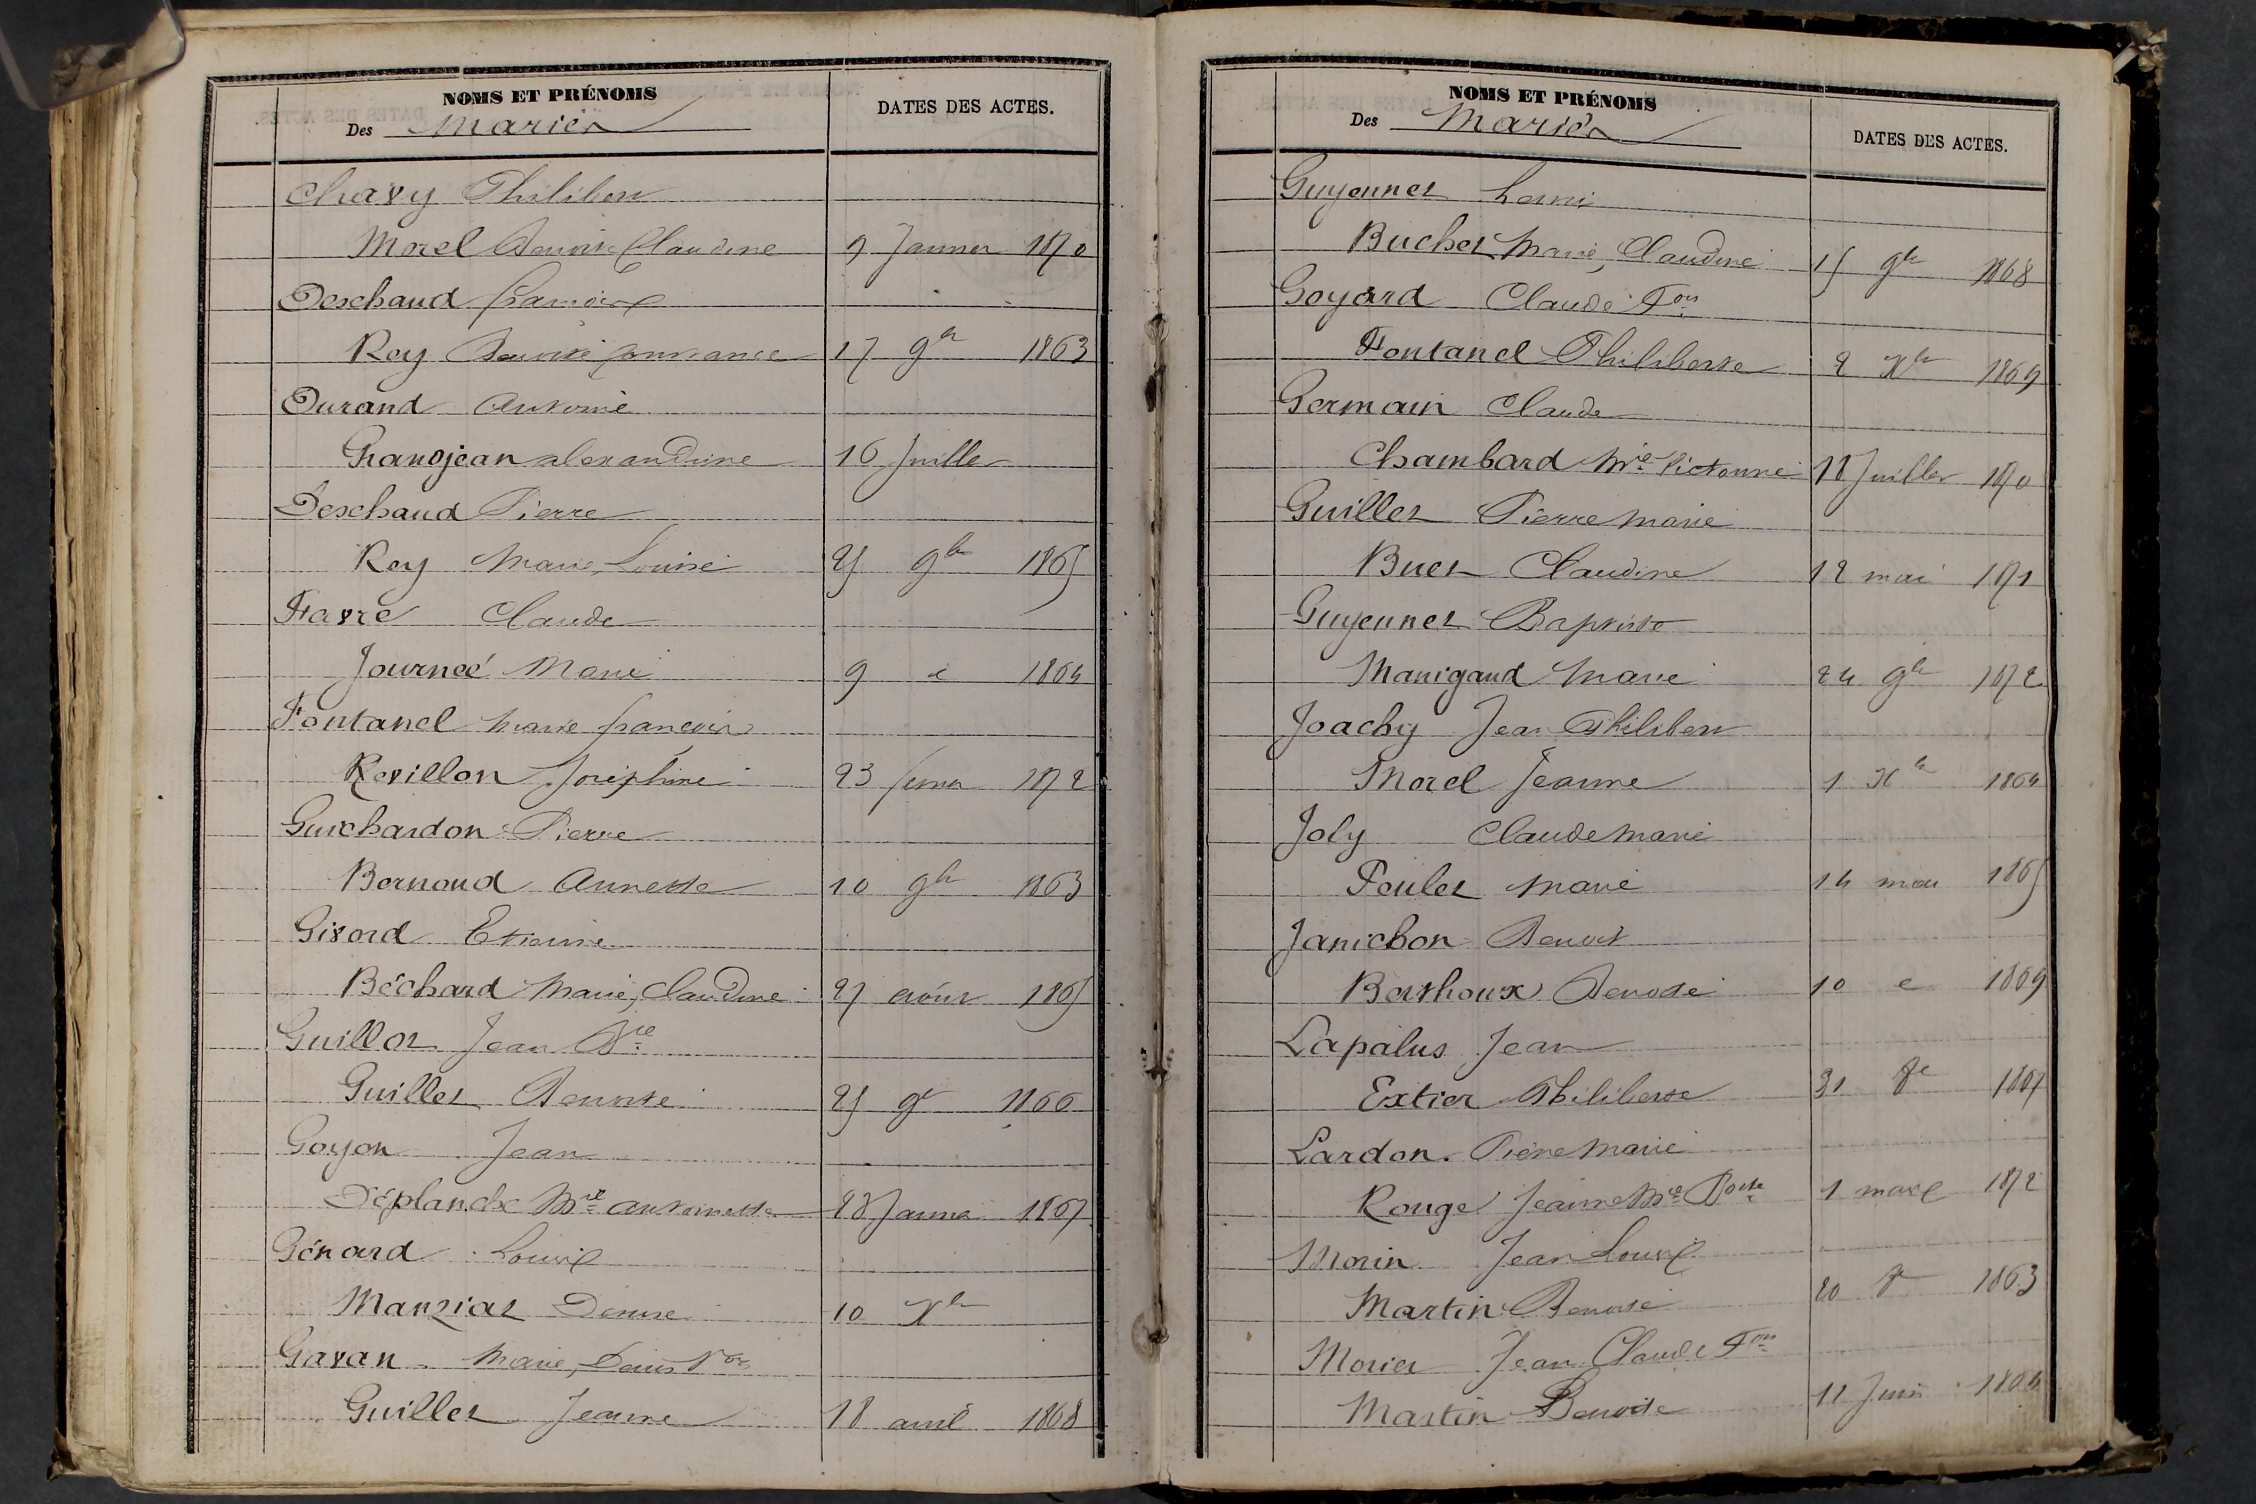 NOMS ET PRÉNOMS
Des Mariés
DATES DES ACTES.
Chavy Philibert
Morel Benoite Claudine 9 Janvier 1870
Deschaud François
Rey Benoite Constance 17 9bre 1863
Durand Antoine
Grandjean alexandrine 16 Juillet
Deschaud Pierre
Rey Marie, Louise 25 9bre 1865
Favre Claude
Journeé Marie 9 d 1864
Fontanel Marie françois
Revillon Joséphine 23 fevrier 1872
Guichardon Pierre
Bernoud Annette 10 9bre 1863
Givord Etienne
Béchard Marie, Claudine 27 août 1865
Guillot Jean Bte
Guillet Benoite 25 9e 1866
Goyon Jean
Déplanche Mie antoinette 28 Janvier 1867
Génard Louis
Manziat Denise 10 Xbre
Gavan Marie, Denis
Guillet Jeanne 18 avril 1868
NOMS ET PRÉNOMS
Des Mariés
DATES DES ACTES.
Guyennet Louis
Buchet Marie, Claudine 15 9bre 1868
Goyard Claude Fois
Fontanel Philiberte 2 Xbre 1869
Germain Claude
Chambard Mie Victorine 18 Juillet 1870
Guillet Pierre Marie
Buet Claudine 12 mai 1871
Guyennet Baptiste
Manigand Marie 24 9bre 1872
Joachy Jean Philibert
Morel Jeanne 1 Xbre 1864
Joly Claude Marie
Poulet Marie 14 mai 1865
Janichon Benoit
Berthoux Benoite 10 e 1869
Lapalus Jean
Extier Philiberte 31 8e 1867
Lardon Pierre Marie
Rouge Jeanne Mie Boite 1 mars 1872
Morin Jean Louis
Martin Benoite 20 8e 1863
Morier Jean Claude Fois
Martin Benoite 12 Juin 1864